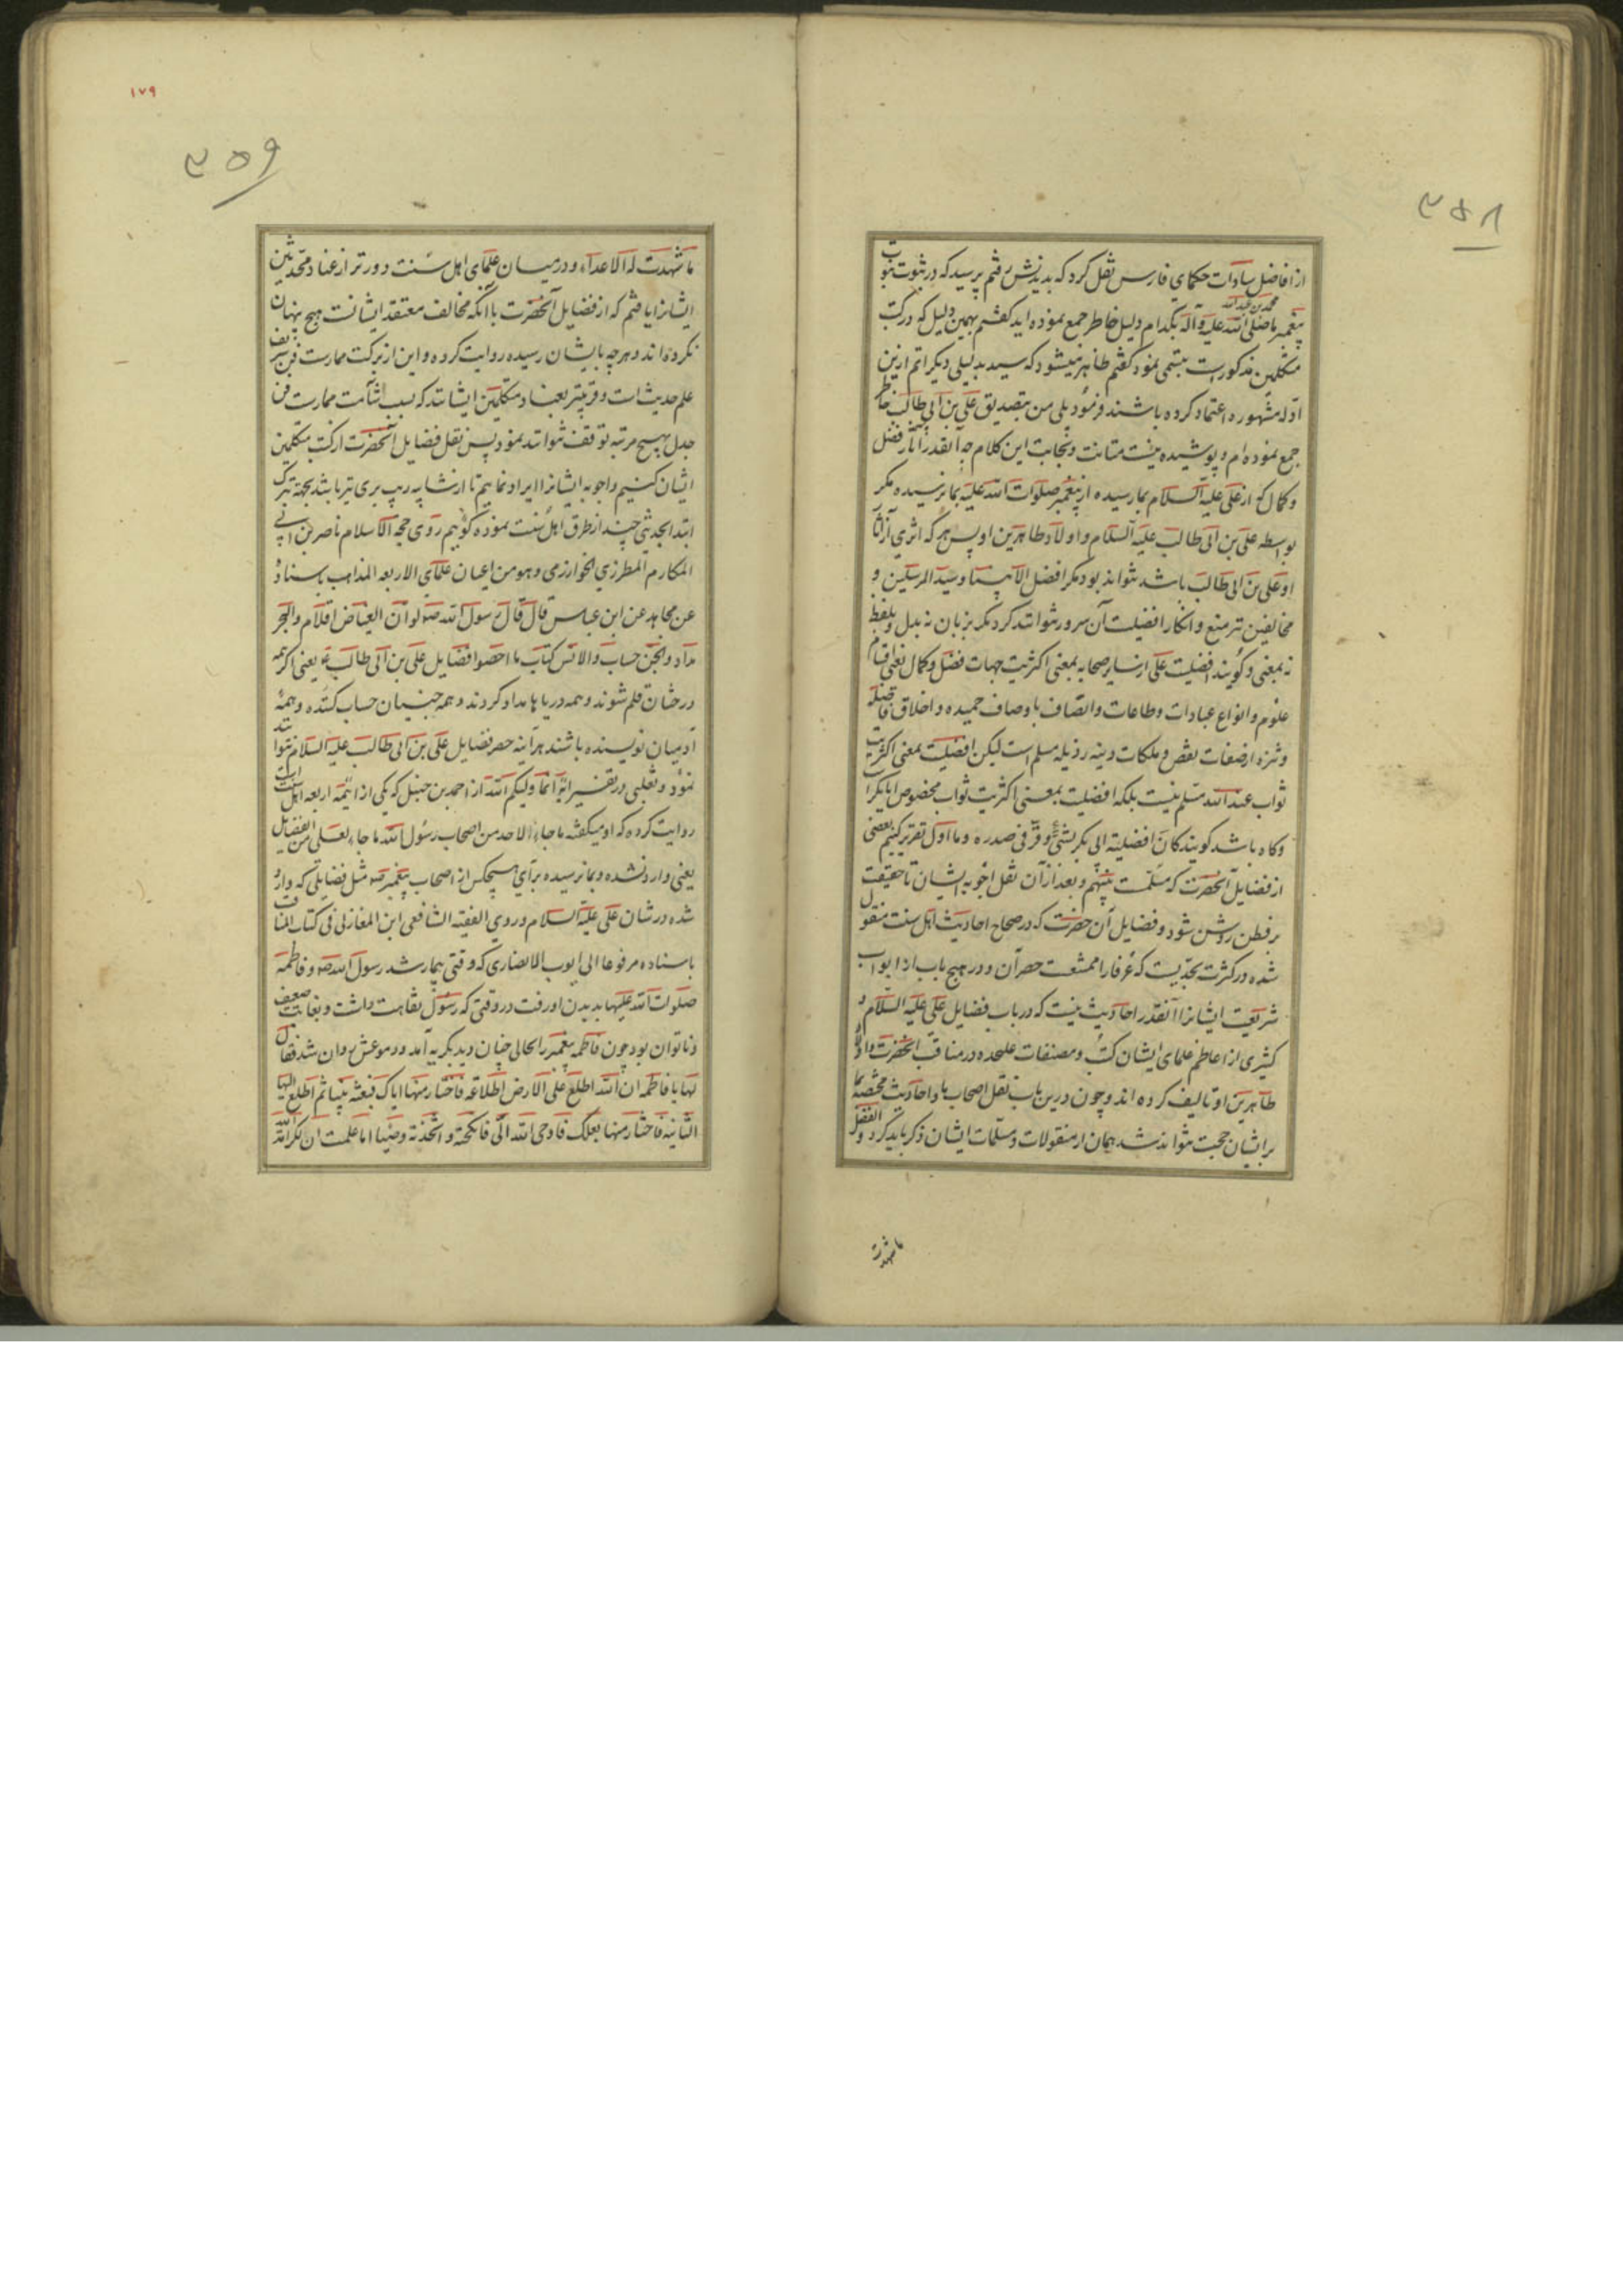 ۳۵۸
از افاضل سادات حکمای فارس نقل کرد که بدیدنش رفتم پرسید که در ثبوت نبوت
محمد بن عبدالله
پیغمبر ما صلی الله علیه و آله بکدام دلیل خاطر جمع نموده اید کفتم بهمین دلیل که در کتب
متکلمین مذکور است تبسمی نمود کفتم ظاهر میشود که سید بدلیلی دیکر اتم ازین
ادله مشهوره اعتماد کرده باشند فرمود بلی من بتصدیق علی بن ابی طالب خاطر
جمع نموده ام و پوشیده نیست متانت و نجابت این کلام چه آنقدر آثار فضل
و کمال که از علی علیه السلام بما رسیده از پیغمبر صلوات الله علیه بما نرسیده مکر
بواسطه علی بن ابی طالب علیه السلام و اولاد طاهرین او پس هر که اثری از آثار
او علی بن ابی طالب باشد نتواند بود مکر افضل الانبیا و سید المرسلین و
مخالفین نیز منع و انکار افضلیت آن سرور نتوانند کرد مکر بزبان نه بدل و بلفظ
نه بمعنی و کویند افضلیت علی از سایر صحابه بمعنی اکثریت جهات فضل و کمال یعنی اقسام
علوم و انواع عبادات و طاعات و اتصاف باوصاف حمیده و اخلاق فاضله
و تنزه از صفات نقص و ملکات دنیه رذیله مسلم است لیکن افضلیت بمعنی اکثریت
ثواب عند الله مسلم نیست بلکه افضلیت بمعنی اکثریت ثواب مخصوص ابابکر است
و کاه باشد کویند کان افضلیة ابی بکر بشئ وقر فی صدره و ما اول تقریر کنیم بعضی
از فضایل آنحضرت که مسلمست بینهم و بعد از آن نقل اجوبه ایشان تا حقیقت
بر فطن روشن شود و فضایل آن حضرت که در صحاح احادیث اهل سنت منقول
شده در کثرت بحدیست که عرفا را ممتنعست حصر آن و در هیچ باب از ابواب
شریعت ایشانرا آنقدر احادیث نیست که در باب فضایل علی علیه السلام و
کثیری از اعاظم علمای ایشان کتب و مصنفات علیحده در مناقب آنحضرت و اولاد
طاهرین او تالیف کرده اند و چون درین باب نقل اصحاب ما و احادیث مختصه بما
بر ایشان حجت نتواند شد همان از منقولات و مسلمات ایشان ذکر باید کرد و الفضل
ما شهدت
۱۷۹
۳۵۹
ما شهدت له الاعداء و در میان علمای اهل سنت دورتر از عناد محدثین
ایشانرا یافتم که از فضایل آنحضرت با آنکه مخالف معتقد ایشانست هیچ پنهان
نکرده اند و هر چه بایشان رسیده روایت کرده و این از برکت ممارست فن شریف
علم حدیث است و قریبتر بعناد متکلمین ایشانند که بسبب شآمت ممارست فن
جدل بهیچ مرتبه توقف نتوانند نمود پس نقل فضایل آنحضرت از کتب متکلمین
ایشان کنیم و اجوبه ایشانرا ایراد نماییم تا از شایبه ریب بری تر باشد بجهة تبرک
ابتدا بحدیثی چند از طرق اهل سنت نموده کوییم روی حجه الاسلام ناصر بن ابی
المکارم المطرزی الخوارزمی و هو من اعیان علمای الاربعه المذاهب باسناده
عن مجاهد عن ابن عباس قال قال رسول الله صه لو ان الغیاض اقلام و البحر
مداد و الجن حساب و الانس کتاب ما احصوا فضایل علی بن ابی طالب ع یعنی اکر همه
درختان قلم شوند و همه دریاها مداد کردند و همه جنیان حساب کننده و همه
آدمیان نویسنده باشند هر آینه حصر فضایل علی بن ابی طالب علیه السلام نتوانند
نمود و ثعلبی در تفسیر آیه انما ولیکم الله از احمد بن حنبل که یکی از ائمه اربعه اهل سنت است
روایت کرده که او میکفته ما جاء لاحد من اصحاب رسول الله ما جاء لعلی من الفضایل
یعنی وارد نشده و بما نرسیده برای هیچکس از اصحاب پیغمبر صه مثل فضایلی که وارد
شده در شان علی علیه السلام و روی الفقیه الشافعی ابن المغازلی فی کتاب المناقب
باسناده مرفوعا الی ایوب الانصاری که وقتی بیمار شد رسول الله صه و فاطمه
صلوات الله علیها بدیدن او رفت در وقتی که رسول نقاهت داشت و بغایت ضعیف
و ناتوان بود چون فاطمه پیغمبر را بحالی چنان دید بکریه آمد و دموعش روان شد فقال
لها یا فاطمه ان الله اطلع علی الارض اطلاعه فاختار منها اباک فبعثه نبیا ثم اطلع الیها
الثانیه فاختار منها بعلک فاوحی الله الی فانکحته و اتخذته وصیا اما علمت ان لکرامة الله